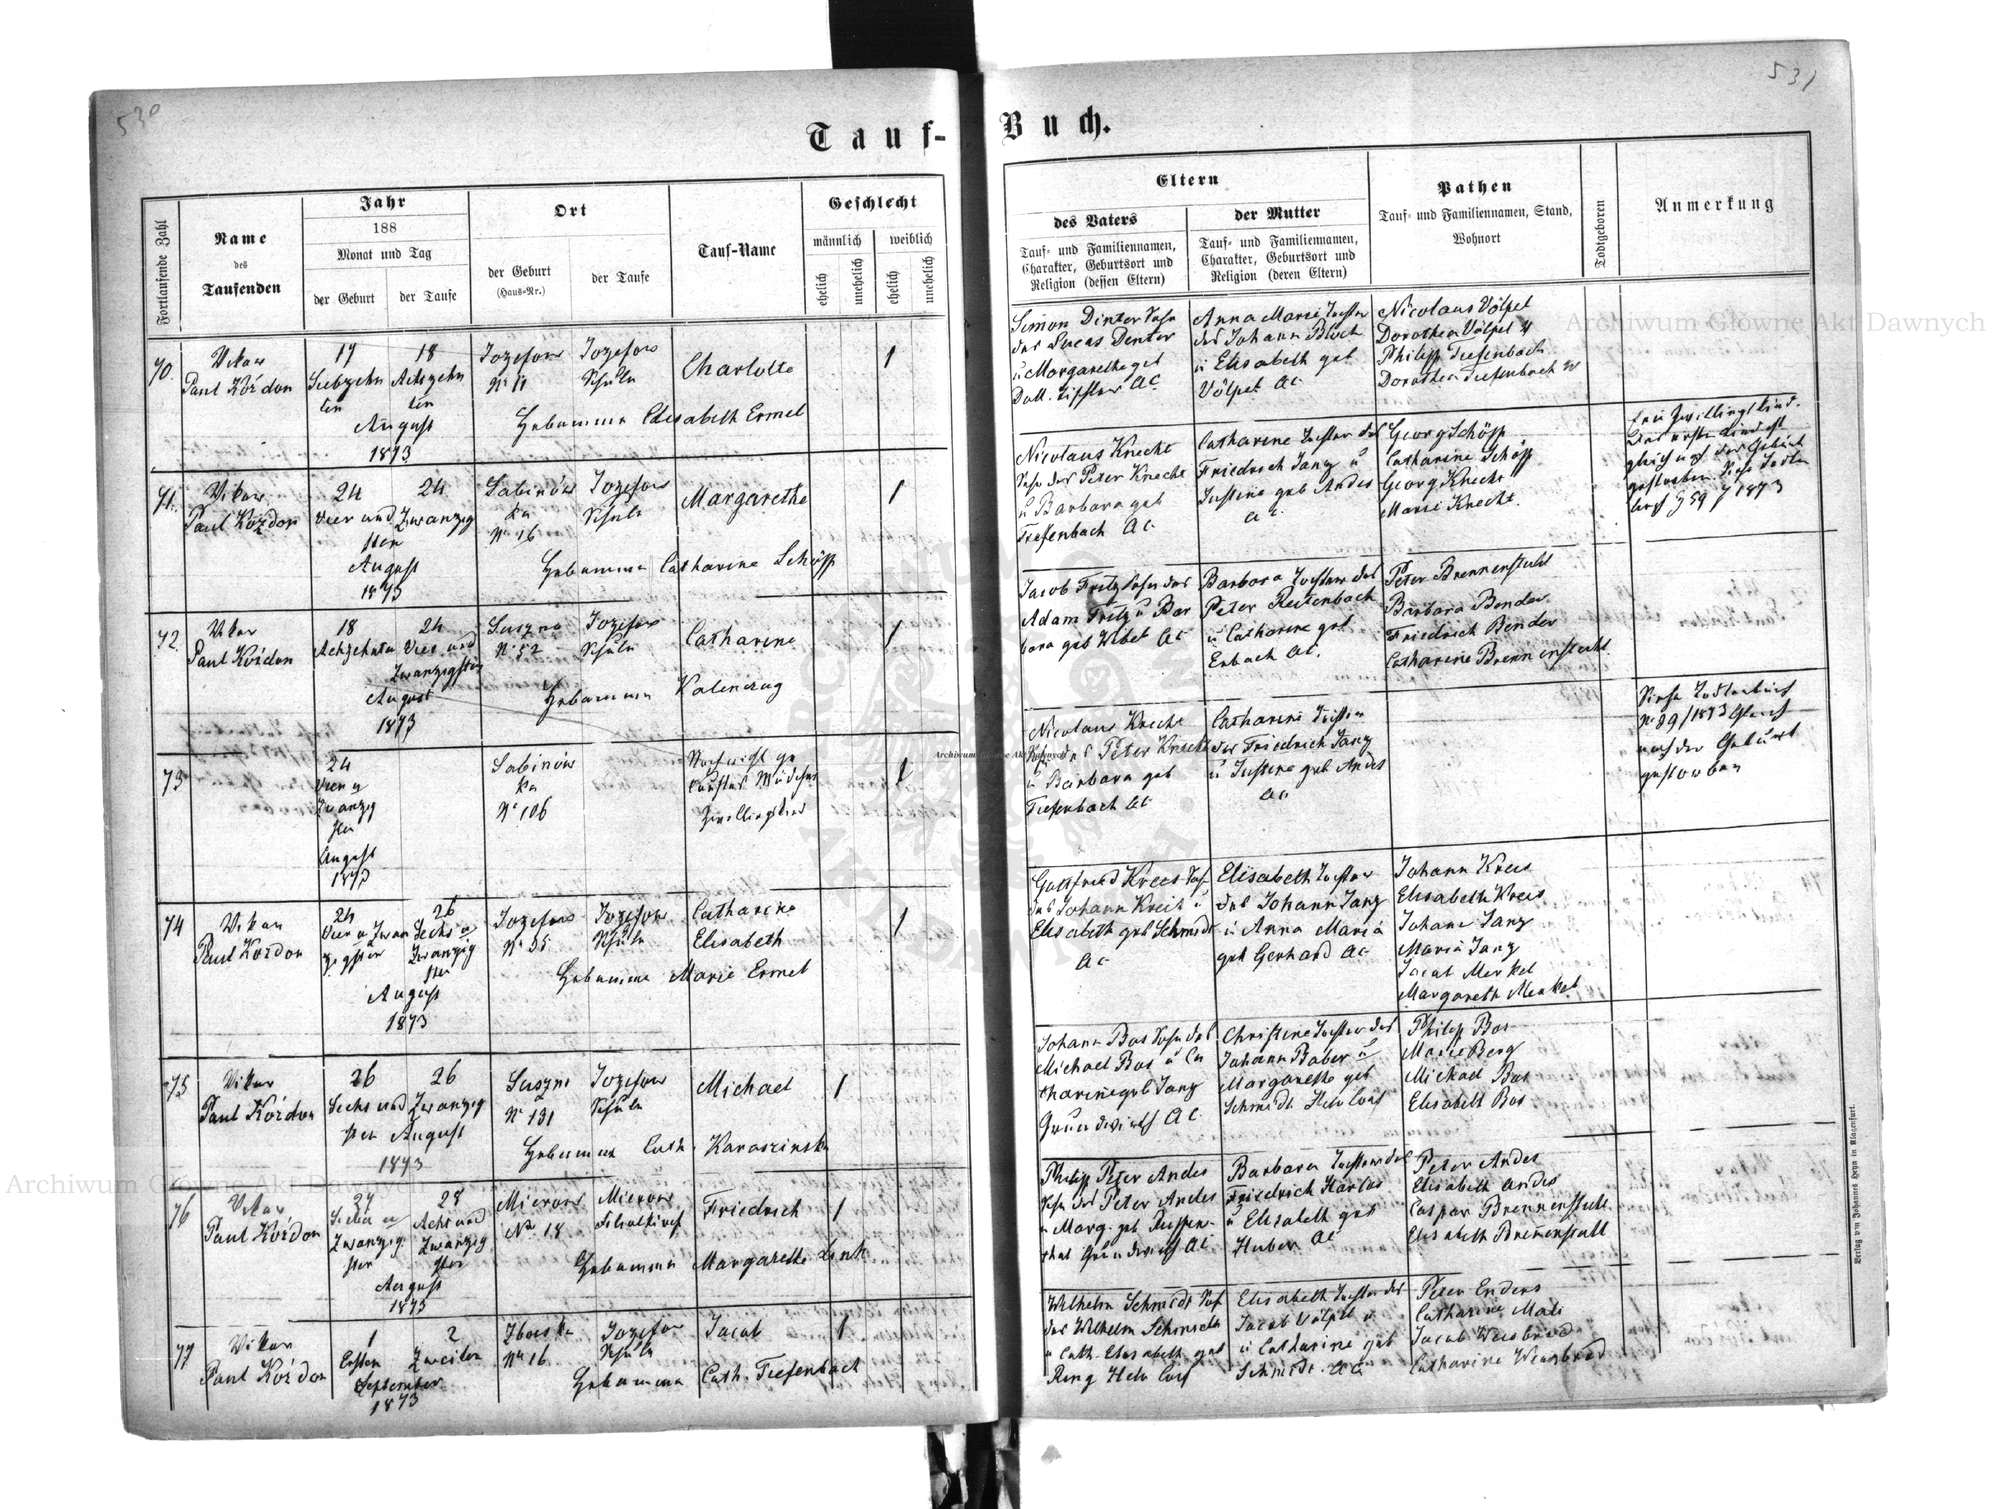 530
531
Tauf-
Buch.
Fortlaufende Zahl
Name
des
Taufenden
Jahr
188
Monat und Tag
der Geburt
der Taufe
Ort
der Geburt
(Haus-Nr.)
der Taufe
Tauf-Name
Geschlecht
männlich
weiblich
ehelich
unehelich
ehelich
unehelich
Eltern
des Vaters
Tauf- und Familiennamen,
Charakter, Geburtsort und
Religion (dessen Eltern)
der Mutter
Tauf- und Familiennamen,
Charakter, Geburtsort und
Religion (deren Eltern)
Pathen
Tauf- und Familiennamen, Stand,
Wohnort
Todtgeboren
Anmerkung
70.
Vikar
Paul Kózdon
17
Siebzehn
ten
18
Achzehn
ten
August
1873
Jozefow
No 11
Jozefow
Schule
Charlotte
1
Hebamme Elisabeth Ermel
Simon Dinter Sohn
des Lucas Denter
u Margarethe geb
AC
Anna Marie Tochter
des Johann Bloch
u Elisabeth geb
Völpel AC
Nicolaus Völpel
Dorothea Völpel
Philipp Tiefenbach
Dorothea Tiefenbach
71.
Vikar
Paul Kózdon
24
24
Vier und Zwanzig
sten
August
1873
Sabinów
ka
No 16
Jozefow
Schule
Margarethe
1
Hebamme Catharine Schöpp
Nicolaus Knecht
Sohn des Peter Knecht
u Barbara geb
Tiefenbach AC
Catharine Tochter des
Friedrich Janz u
Justine geb Andes
AC
Georg Schöpp
Catharine Schöpp
Georg Knecht
Marie Knecht
Ein Zwillingskind.
Das erste Kind ist
gleich nach der Geburt
gestorben. Siehe Todten
1873
72
Vikar
Paul Kózdon
18
Achzehnten
24
Vier und
Zwanzigsten
August
1873
Suszno
No 52
Jozefow
Schule
Catharine
1
Hebamme Kalenczug
Jacob Fritz Sohn des
Adam Fritz u Bar
bara geb Weber AC
Barbara Tochter des
Peter Reitenbach
u Catharine geb
Enbach AC
Peter Brennenstuhl
Barbara Bender
Friedrich Bender
Catharine Brennenstuhl
73
24
Vier u
Zwanzig
sten
August
1873
Sabinów
ka
No 106
Noch nicht ge
tauftes Mädchen
Zwillingskind
1
Nicolaus Knecht
Sohn des Peter Knecht
u Barbara geb
Tiefenbach AC
Catharine Tochter
des Friedrich Janz
u Justine geb Andes
AC
Siehe Todtenbuch
No 89/1873 Gleich
nach der Geburt
gestorben
74
Vikar
Paul Kozdon
24
Vier u Zwan
zigsten
26
Sechs u
Zwanzig
sten
August
1873
Jozefow
No 55
Jozefow
Schule
Catharine
Elisabeth
1
Hebamme Marie Ermel
Gottfried Kreis Sohn
des Johann Kreis u
Elisabeth geb Schmidt
AC
Elisabeth Tochter
des Johann Janz
u Anna Maria
geb Gerhard AC
Johann Kreis
Elisabeth Kreis
Johann Janz
Maria Janz
Jacob Merkel
Margareth Merkel
75
Vikar
Paul Kózdon
26
26
Sechs und Zwanzig
sten August
1873
Suszno
No 131
Jozefow
Schule
Michael
1
Hebamme Cath. Karaszinska
Johann Bos Sohn des
Michael Bos u Ca
tharine geb Janz
Grundwirth AC
Christine Tochter des
Johann Baber u
Margarethe geb
Schmidt Helv Conf
Philipp Bos
Marie Berg
Michael Bos
Elisabeth Bos
76
Vikar
Paul Kózdon
27
Sieben u
Zwanzig
sten
28
Acht und
Zwanzig
sten
August
1873
Mierow
No 18
Mierow
Filialkirche
Friedrich
1
Hebamme Margarethe Link
Philipp Peter Andes
Sohn des Peter Andes
Grundwirth AC
Barbara Tochter des
Friedrich Harlos
u Elisabeth geb
Huber AC
Peter Andes
Elisabeth Andes
Caspar Brennenstuhl
Elisabeth Brennenstuhl
77
Vikar
Paul Kózdon
1
Ersten
2
Zweiten
September
1873
No 16
Jozefow
Schule
Jacob
1
Hebamme Cath. Tiefenbach
Wilhelm Schmidt Sohn
des Wilhelm Schmidt
u Cath. Elisabeth geb
Ring Helv Conf
Elisabeth Tochter des
Jacob Völpel u
u Catharine geb
Schmidt. AC
Peter Enders
Catharine Mali
Jacob Weisbrod
Catharine Weisbrod
Verlag von Johannes Heyn in Klagenfurt.
Archiwum Główne Akt Dawnych
Archiwum Główne Akt Dawnych
Archiwum Główne Akt Dawnych